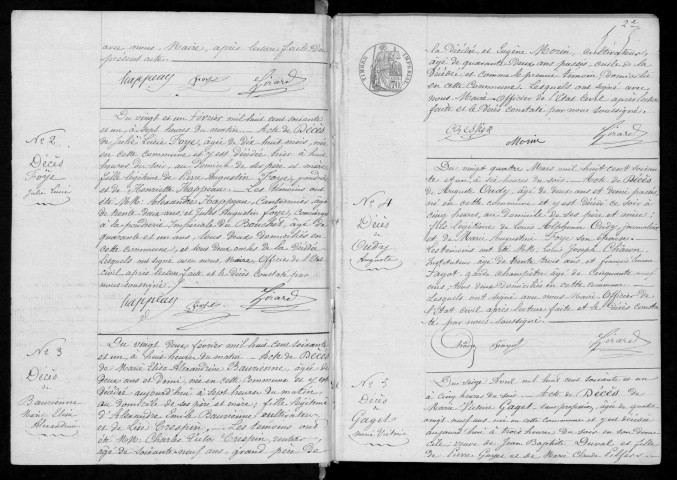 avec nous Maire, après lecture faite du
présent acte.
Happeau Foye Girard
No 2
Décès
Foye
Julie Lucie
Du vingt et un Février mil huit cent soixante
et un, à sept heures du matin. Acte de Décès
de Julie Lucie Foye, âgée de dix huit mois, née
en cette commune et y est décédée hier à huit
heures du soir, au domicile de ses père et mère
fille légitime de Pierre Augustin Foye, poudrier
et de Henriette Happeau. Les témoins ont
été MM. Alexandre Happeau, Cantonnier, âgé
de trente deux ans, et Jules Augustin Foye, Concierge
à la poudrerie Impériale du Bouchet, âgé de
quarante et un ans, tous deux domiciliés en
cette commune, et tous deux oncles de la Décédée
Lesquels ont signé avec nous, Maire, Officier de l'État
civil, après lecture faite et le Décès constaté par
nous soussigné.
Happeau Foye Girard
No 3
Décès
de
Bauvienne
Marie Elisa
Alexandrine
Du vingt deux février mil huit cent soixante
et un, à huit heures du matin. Acte de Décès
de Marie Elisa Alexandrine Bauvienne, âgée de
deux ans et demi, née en cette Commune et y est
décédée aujourd'hui à sept heures du matin,
au domicile de ses père et mère; fille légitime
d'Alexandre Emile Bauvienne, cultivateur
et de Crespin. Les témoins ont
été MM. Charles Crespin, rentier,
âgé de soixante-neuf ans, grand père de
22
TIMBRE IMPERIAL
la Décédée, et Eugène Morin, cultivateur,
âgé de quarante deux ans passés, oncle de la
Décédée et comme le premier témoin Domicilié
en cette Commune. Lesquels ont signé avec
nous Maire Officier de l'État Civil après lecture
faite et le Décès constaté par nous soussigné.
Crespin
Morin Girard
No 4
Décès
Oudry
Auguste
Du vingt quatre Mars mil huit cent soixante
et un, à six heures du soir. Acte de Décès
de Auguste Oudry, âgé de deux ans et demi passés,
né en cette commune et y est décédé ce soir à
cinq heures, au domicile de ses père et mère;
fils légitime de Louis Alphonse Oudry, journalier
et de Marie Augustine Foye son épouse.
Les témoins ont été MM. Louis Joseph
Instituteur âgé de trente trois ans, et françois
Fayot, garde champêtre âgé de cinquante neuf
ans, tous deux Domiciliés en cette commune
Lesquels ont signé avec nous Maire Officier de
l'État Civil après lecture faite et le Décès constaté
par nous soussigné.
Girard
No 5
Décès
de
Gaget
Marie Victoire
Du seize Avril mil huit cent soixante et un
à cinq heures du soir. Acte de Décès de
Marie Victoire Gaget, sans profession, âgée de quatre
vingt neuf ans, née en cette commune et y est décédée
aujourd'hui à trois heures du soir en son domicile
veuve de Jean Baptiste Duval et fille
de Pierre Gaget et de Marie Claude